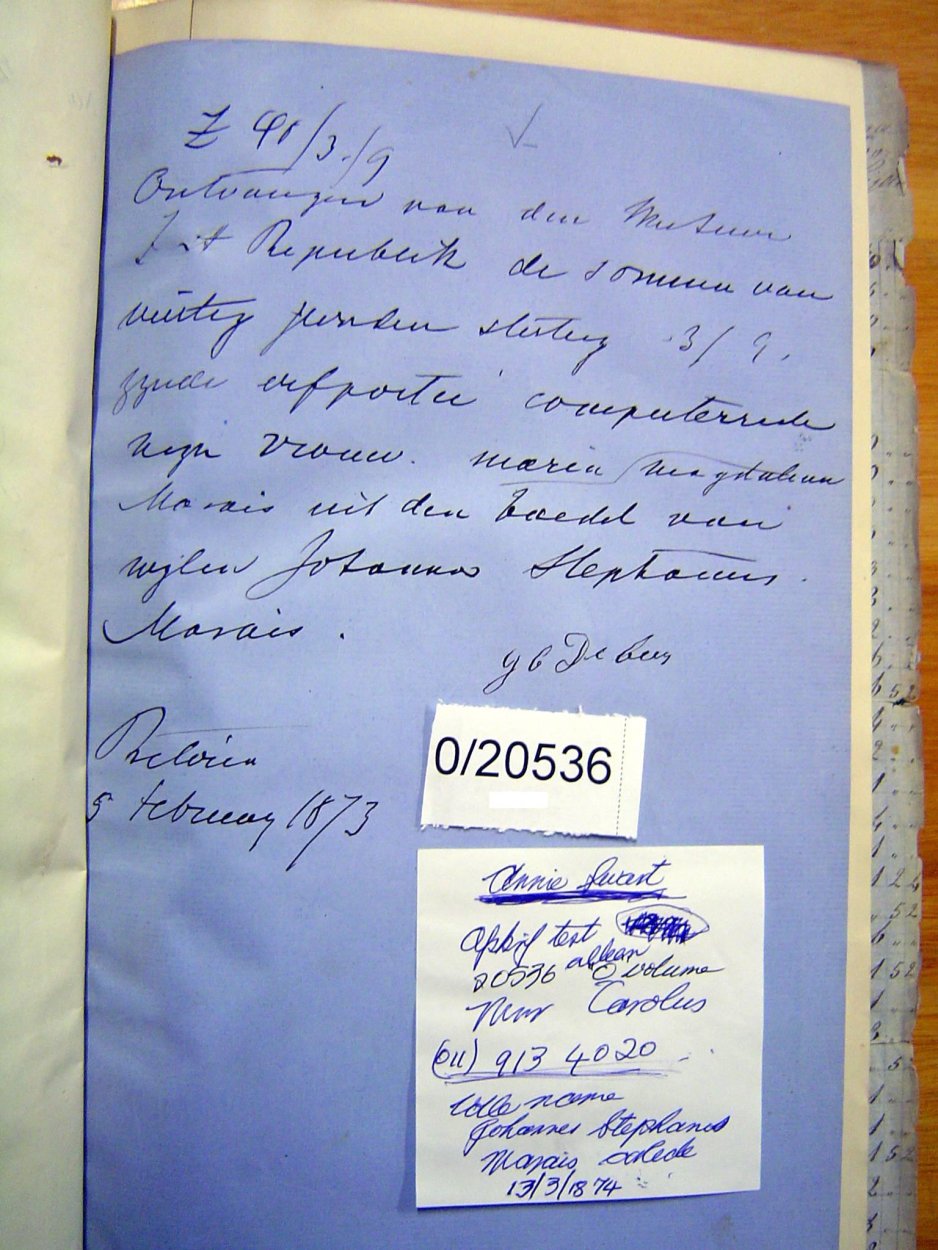 £ 40/3/9
Ontvangen van den Meester
Republiek de somma van
veertig ponden sterling 3/9.
zynde erfportie competerende
myn vrouw. Maria Magdalena
Marais uit den boedel van
wylen Johannes Stephanus.
Marais.
De Beer
Pretoria
5 February 1873
0/20536
Annie Swart
test
alleen
20536 "O" volume
Mnr Carolus
(011) 913 4020
Volle name
Johannes Stephanus
Marais
13/3/1874